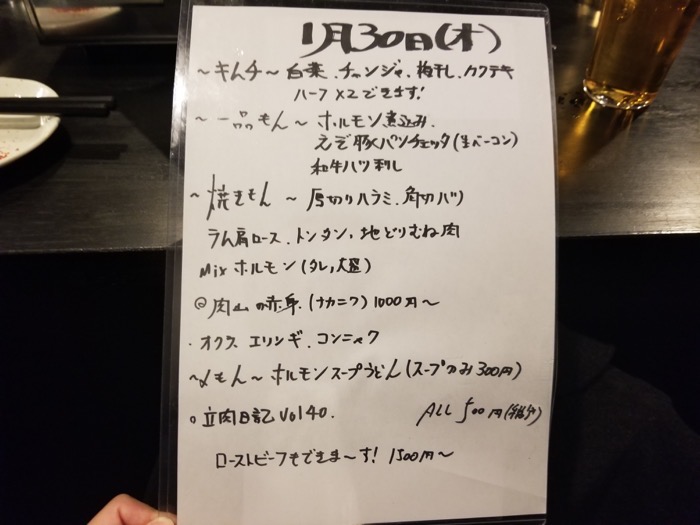 1月30日(木)
～キムチ～ 白菜、チャンジャ、梅干し、カクテキ
ハーフ×2できます!
～一品もん～ ホルモン煮込み、
えぞ豚パンチェッタ(生ベーコン)
和牛ハツ刺し
～焼きもん～ 厚切りハラミ、角切ハツ
ラム肩ロース、トンタン、地どりむね肉
Mixホルモン(タレ, 塩)
@肉山の赤身 (ナカニク) 1000円～
・オクラ エリンギ、コンニャク
～〆もん～ ホルモンスープうどん(スープのみ300円)
○立肉日記 Vol 40. ALL 500円(税抜)
ローストビーフもできま～す! 1500円～